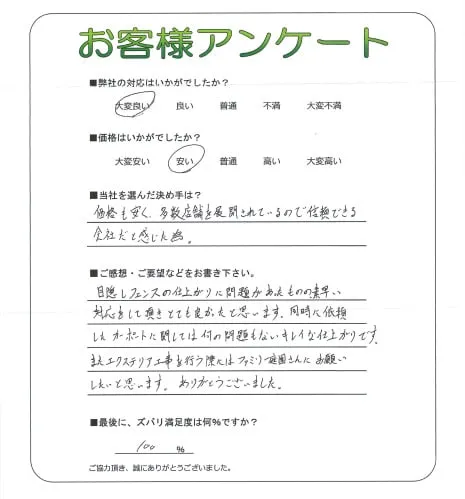 お客様アンケート
■弊社の対応はいかがでしたか?
大変良い 良い 普通 不満 大変不満
■価格はいかがでしたか?
大変安い 安い 普通 高い 大変高い
■当社を選んだ決め手は?
価格も安く、多数店舗を展開されているので信頼できる
会社だと感じた為。
■ご感想・ご要望などをお書き下さい。
目隠しフェンスの仕上がりに問題があったものの素早い
対応をして頂きとても良かったと思います。同時に依頼
したカーポートに関しては何の問題もないキレイな仕上がりです。
またエクステリア工事を行う際にはファミリー庭園さんにお願い
したいと思います。ありがとうございました。
■最後に、ズバリ満足度は何%ですか?
100 %
ご協力頂き、誠にありがとうございました。